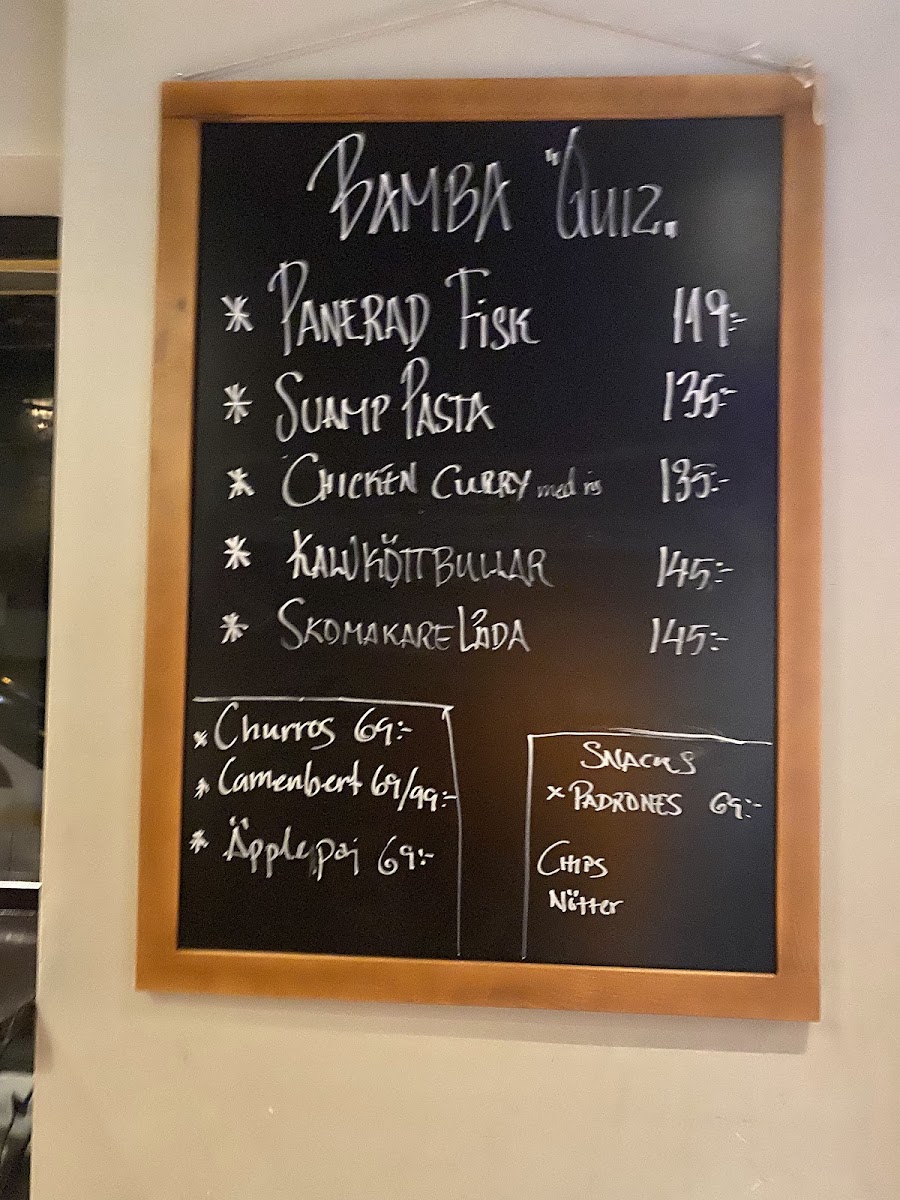 BAMBA "QUIZ"
* PANERAD FISK 119:-
* SVAMP PASTA 135:-
* CHICKEN CURRY med ris 135:-
* KALVKÖTTBULLAR 145:-
* SKOMAKARELÅDA 145:-
* Churros 69:-
* Camenbert 69/99:-
* Äpplepaj 69:-
SNACKS
* PADRONES 69:-
CHIPS
Nötter